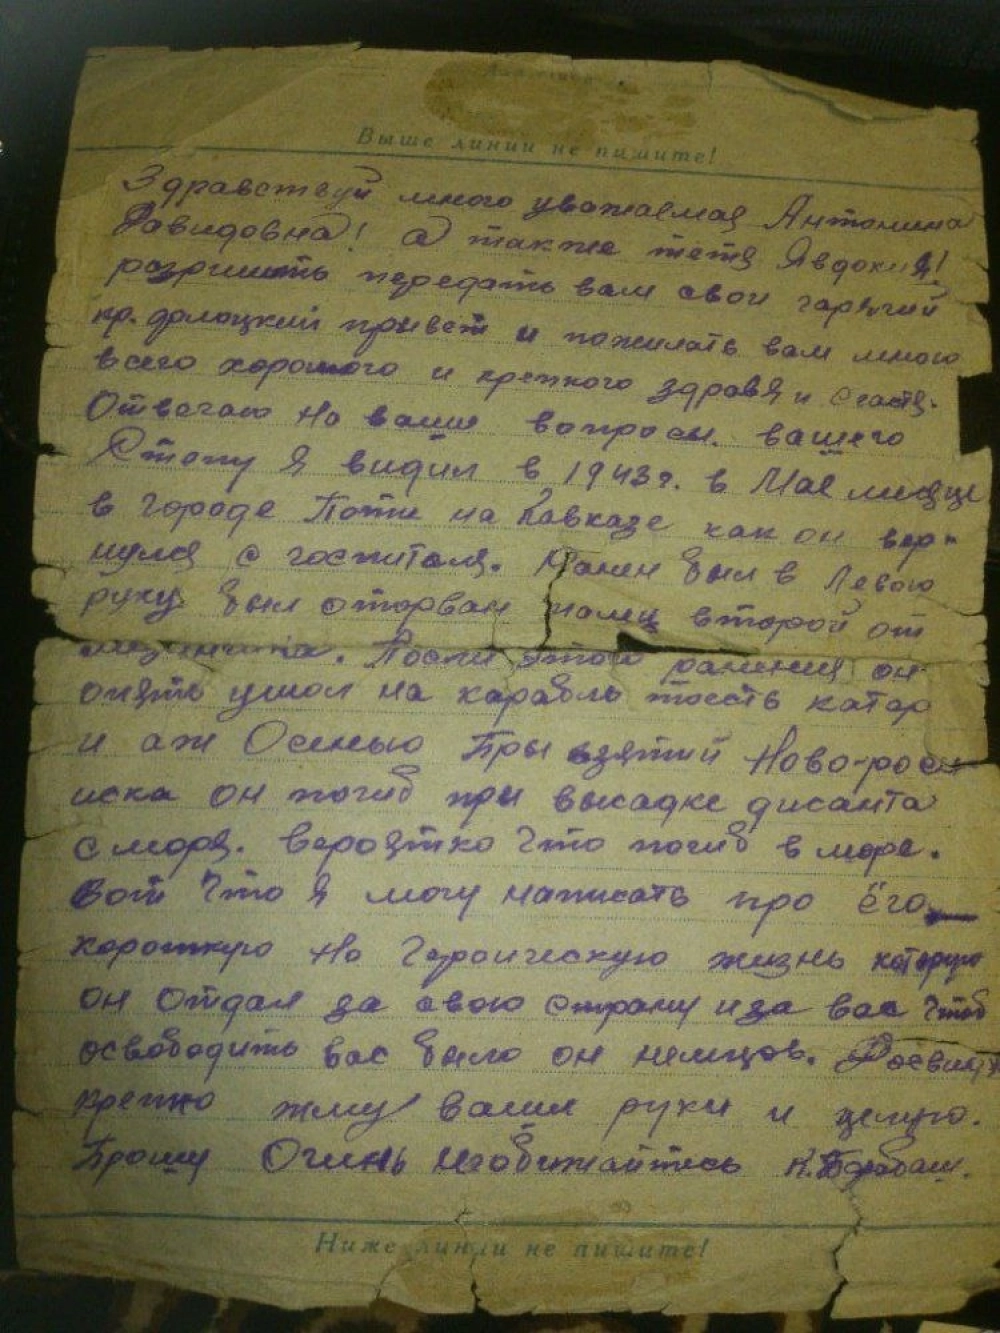 Выше линии не пишите!
Здравствуй много уважаемая Антонина
Давидовна! а также тетя Явдокия!
розришить передать вам свой гарячий
кр. флоцкий привет и пожилать вам много
всего хорошого и крепкого здравя и счастя.
Отвечаю на ваши вопросы. вашего
Стопу я видил в 1943г. в Мае месяце
в городе Поти на Кавказе как он вер-
нулся с госпиталя. Ранен был в Левою
руку был оторван палец второй от
мизинчика. Посли этого ранения он
опять ушол на карабль тоесть катар
и аж Осенью При взятий Ново-росси
иска он погиб при высадке дисанта
с моря. вероятно что погиб в море.
Вот что я могу написать про его
короткую но Героическую жизнь катарую
он отдал за свою страну и за вас чтоб
освободить вас было он немцов. Досвидан
крепко жму ваши руки и целую.
Прошу Очинь необижайтесь К. Барабаш.
Ниже линии не пишите!